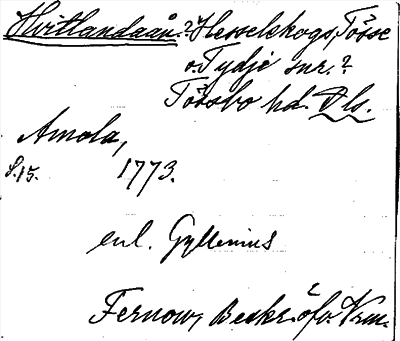 Hvitlandaån? Hesselskogs, Tösse
o. Tydje snr.?
Tössbo hd. Dls.
Amola,
S.15. 1773.
enl. Gyllenius
Fernow, Beskr. öfv. Vrm.